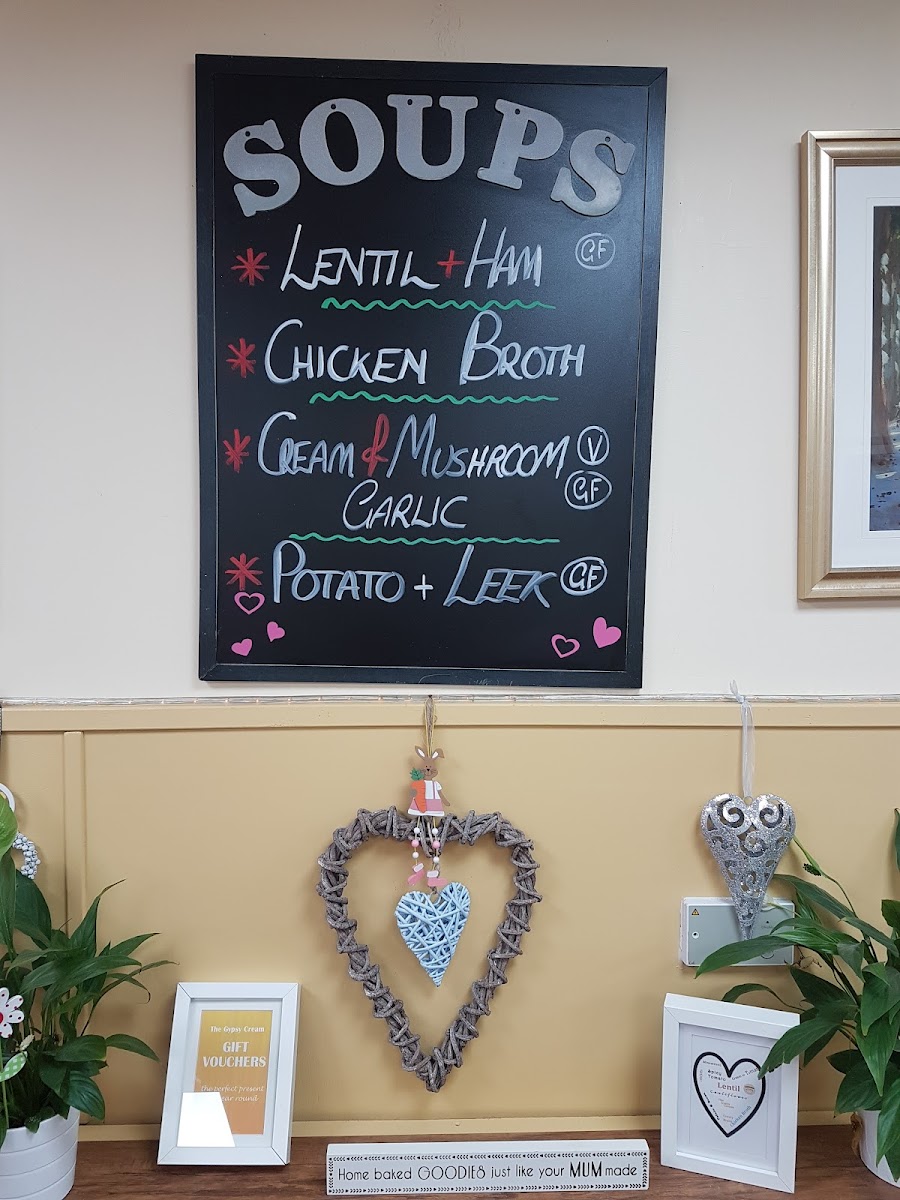 SOUPS
* LENTIL + HAM GF
* CHICKEN BROTH
* CREAM & MUSHROOM V
GARLIC GF
* POTATO + LEEK GF
The Gypsy Cream
GIFT
VOUCHERS
the perfect present
year round
Lentil
Home baked GOODIES just like your MUM made